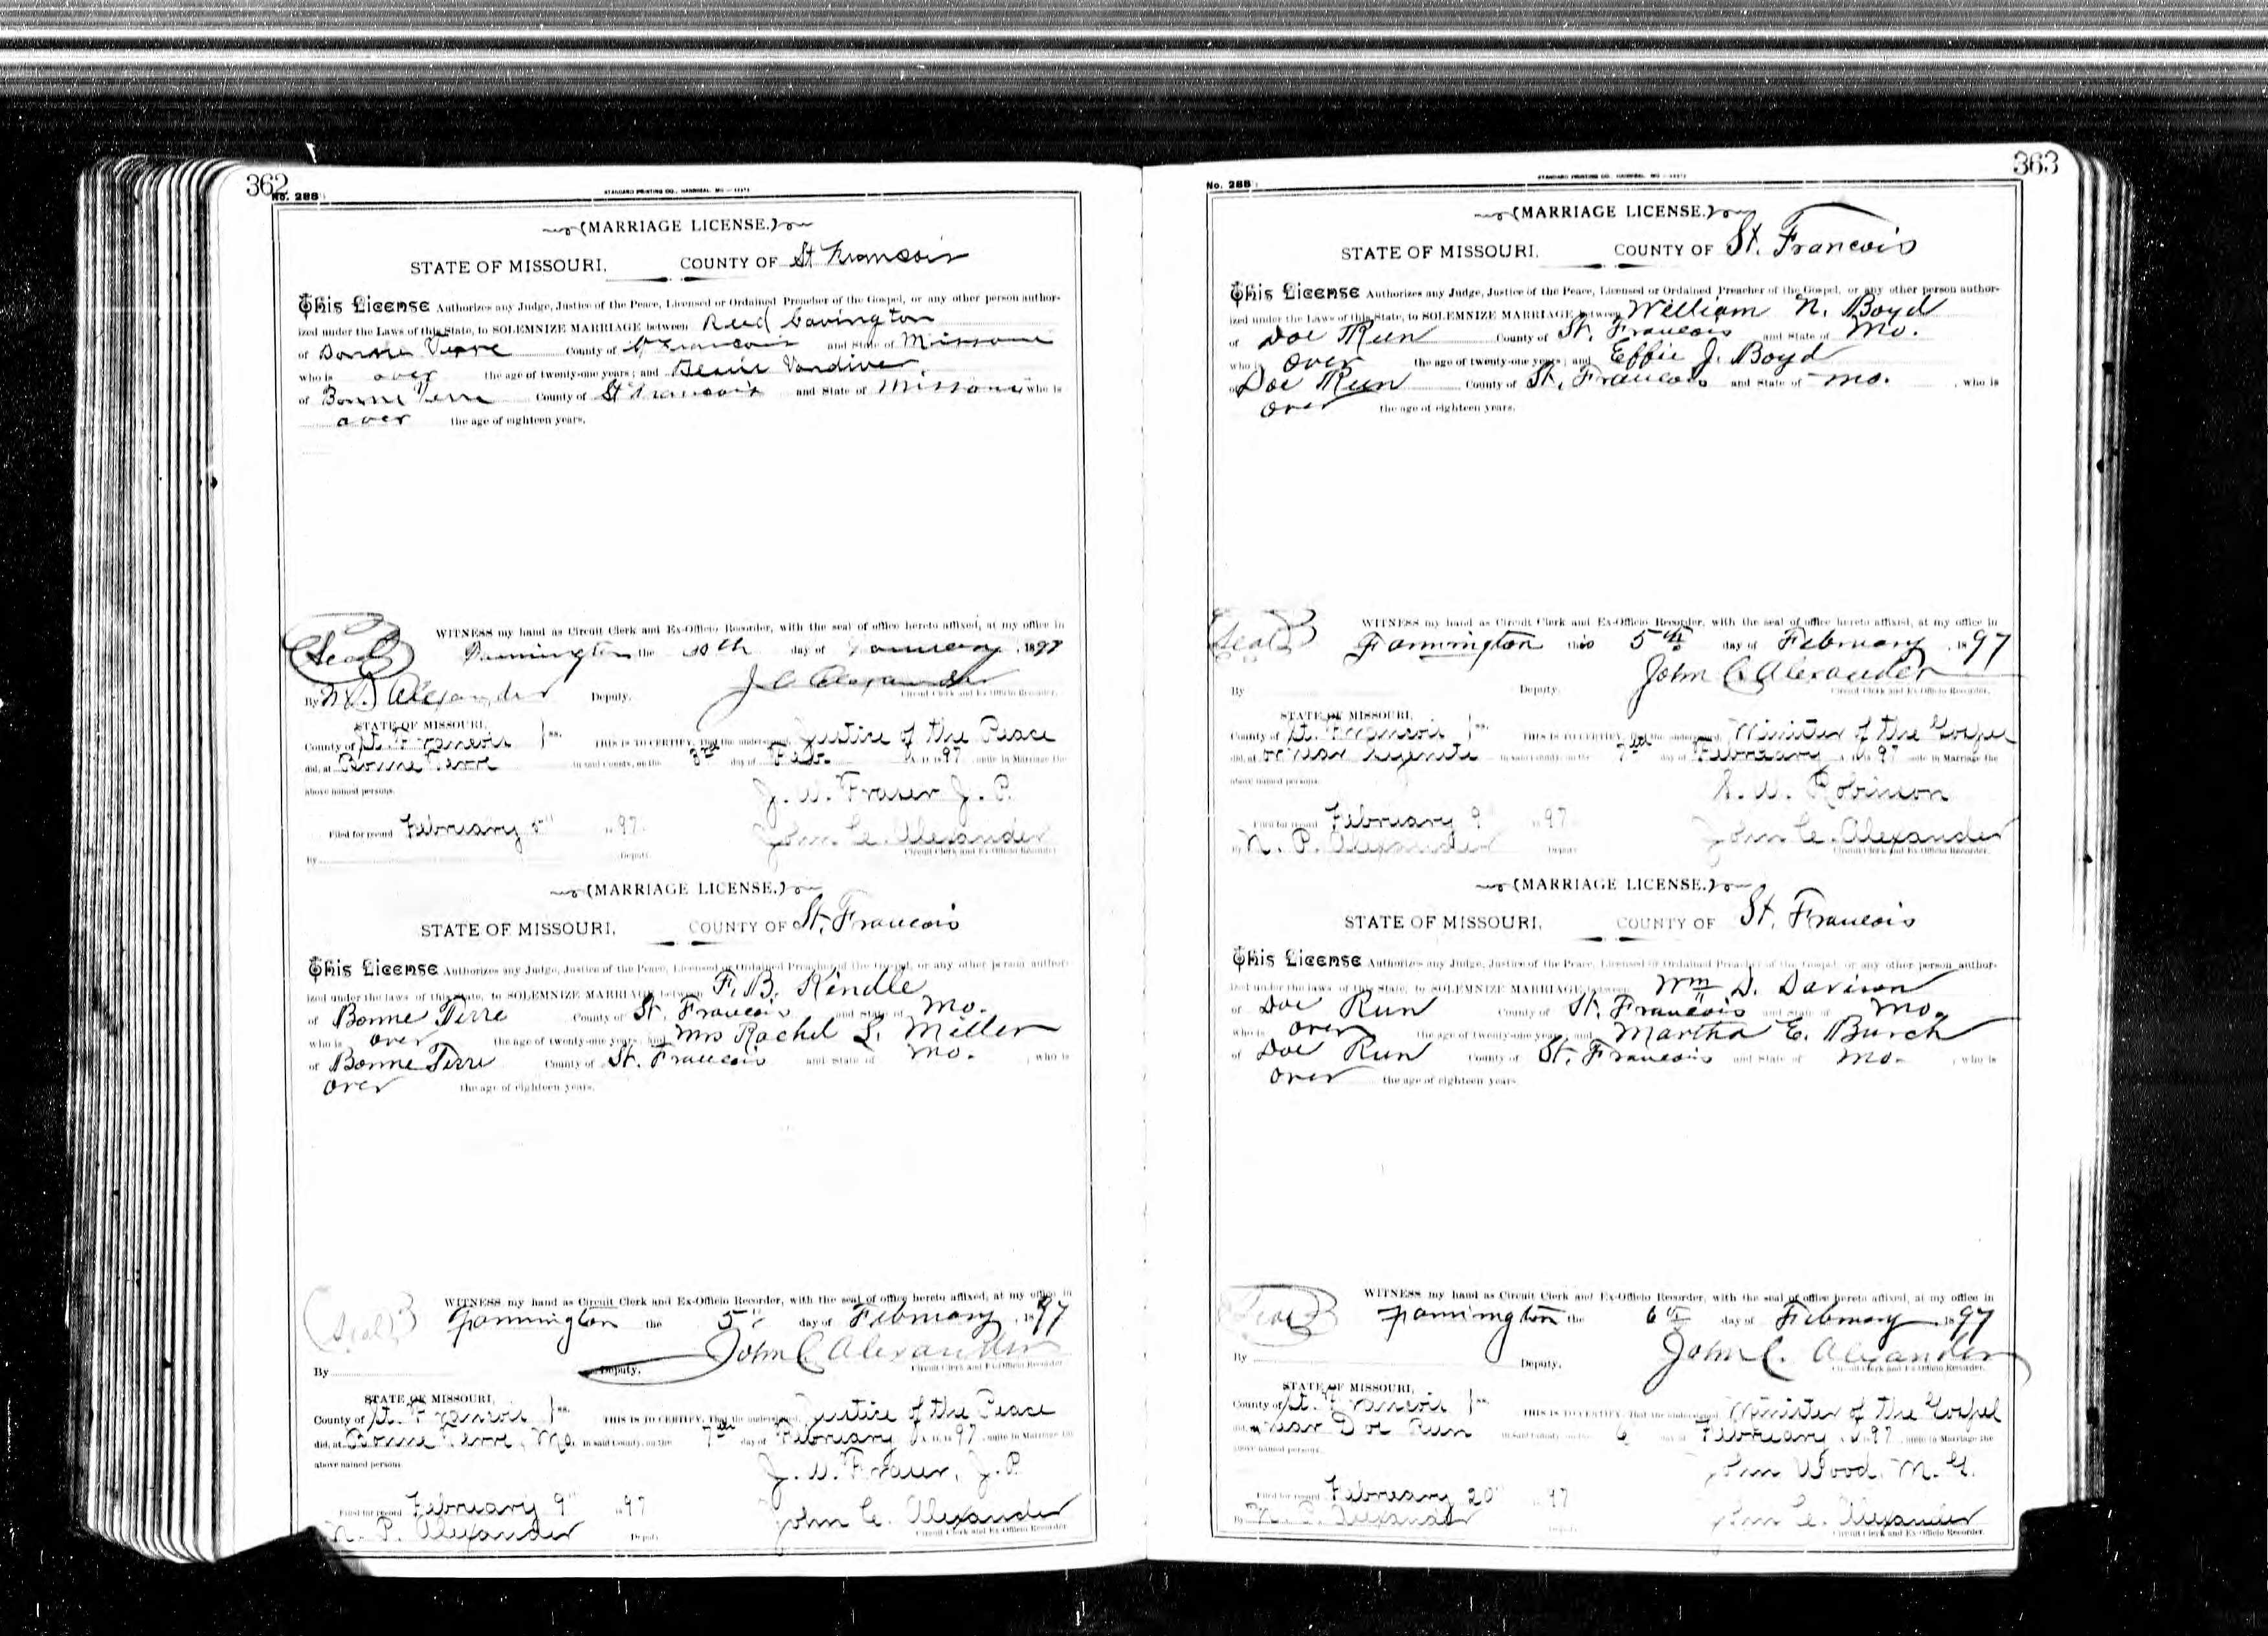 362
No. 288
STANDARD PRINTING CO., HANNIBAL, MO
(MARRIAGE LICENSE.)
STATE OF MISSOURI, COUNTY OF St Francois
This License Authorizes any Judge, Justice of the Peace, Licensed or Ordained Preacher of the Gospel, or any other person author-
ized under the Laws of this State, to SOLEMNIZE MARRIAGE between Reed Covington
of Bonne Terre County of St Francois and State of Missouri
who is over the age of twenty-one years; and Vandiver
of Bonne Terre County of St Francois and State of Missouri who is
over the age of eighteen years.
WITNESS my hand as Circuit Clerk and Ex-Officio Recorder, with the seal of office hereto affixed, at my office in
(Seal) Farmington the day of January 1897
J C Alexander
By N. P. Alexander Deputy. Circuit Clerk and Ex-Officio Recorder.
STATE OF MISSOURI,
County of St. Francois ss. THIS IS TO CERTIFY, That the undersigned Justice of the Peace
did, at Bonne Terre in said County, on the 3rd day of Feb. A. D. 1897 unite in Marriage the
above named persons. J. W. Fraser J. P.
Filed for record February 5" 1897. John C. Alexander
By Deputy. Circuit Clerk and Ex-Officio Recorder.
(MARRIAGE LICENSE.)
STATE OF MISSOURI, COUNTY OF St. Francois
This License Authorizes any Judge, Justice of the Peace, Licensed or Ordained Preacher of the Gospel, or any other person author-
ized under the laws of this State, to SOLEMNIZE MARRIAGE between F. B. Kindle
of Bonne Terre County of St. Francois and State of Mo.
who is over the age of twenty-one years; and Mrs Rachel L. Miller
of Bonne Terre County of St. Francois and State of Mo. , who is
over the age of eighteen years.
WITNESS my hand as Circuit Clerk and Ex-Officio Recorder, with the seal of office hereto affixed, at my office in
(Seal) Farmington the 5" day of February 1897
John C Alexander
By Deputy. Circuit Clerk and Ex-Officio Recorder
STATE OF MISSOURI,
County of St. Francois ss. THIS IS TO CERTIFY, That the undersigned Justice of the Peace
did, at Bonne Terre, Mo. in said County, on the 7th day of February A. D. 1897 unite in Marriage the
above named persons. J. W. Fraser, J. P.
Filed for record February 9" 1897 John C. Alexander
N. P. Alexander Deputy Circuit Clerk and Ex-Officio Recorder
363
No. 288
STANDARD PRINTING CO., HANNIBAL, MO
(MARRIAGE LICENSE.)
STATE OF MISSOURI, COUNTY OF St. Francois
This License Authorizes any Judge, Justice of the Peace, Licensed or Ordained Preacher of the Gospel, or any other person author-
ized under the Laws of this State, to SOLEMNIZE MARRIAGE between William N. Boyd
of Doe Run County of St. Francois and State of Mo.
who is over the age of twenty-one years; and Effie J. Boyd
of Doe Run County of St. Francois and State of Mo. , who is
over the age of eighteen years.
WITNESS my hand as Circuit Clerk and Ex-Officio Recorder, with the seal of office hereto affixed, at my office in
Seal Farmington this 5th day of February 1897
John C Alexander
By Deputy. Circuit Clerk and Ex-Officio Recorder.
STATE OF MISSOURI,
County of St. Francois ss. THIS IS TO CERTIFY, That the undersigned Minister of the Gospel
did, at or near in said County, on the 7th day of February A. D. 1897 unite in Marriage the
above named persons. Robinson
Filed for record February 9 1897 John C. Alexander
By N. P. Alexander Deputy Circuit Clerk and Ex-Officio Recorder.
(MARRIAGE LICENSE.)
STATE OF MISSOURI, COUNTY OF St. Francois
This License Authorizes any Judge, Justice of the Peace, Licensed or Ordained Preacher of the Gospel, or any other person author-
ized under the laws of this State, to SOLEMNIZE MARRIAGE between Wm D. Davison
of Doe Run County of St. Francois and State of Mo.
who is over the age of twenty-one years; and Martha E. Burch
of Doe Run County of St. Francois and State of Mo. , who is
over the age of eighteen years
WITNESS my hand as Circuit Clerk and Ex-Officio Recorder, with the seal of office hereto affixed, at my office in
Seal Farmington the 6th day of February 1897
John C. Alexander
By Deputy. Circuit Clerk and Ex-Officio Recorder.
STATE OF MISSOURI,
County of St. Francois ss. THIS IS TO CERTIFY, That the undersigned Minister of the Gospel
did, at near Doe Run in said County, on the 6 day of February A. D. 1897 unite in Marriage the
above named persons. John Wood, M. G.
Filed for record February 20" 1897
By N. P. Alexander Deputy John C. Alexander
Circuit Clerk and Ex-Officio Recorder.